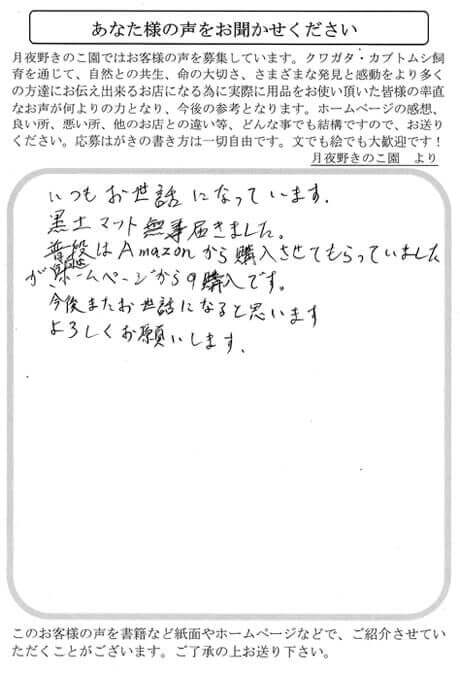 あなた様の声をお聞かせください
月夜野きのこ園ではお客様の声を募集しています。クワガタ・カブトムシ飼
育を通じて、自然との共生、命の大切さ、さまざまな発見と感動をより多く
の方達にお伝え出来るお店になる為に実際に用品をお使い頂いた皆様の率直
なお声が何よりの力となり、今後の参考となります。ホームページの感想、
良い所、悪い所、他のお店との違い等、どんな事でも結構ですので、お送り
ください。応募はがきの書き方は一切自由です。文でも絵でも大歓迎です！
月夜野きのこ園　より
いつもお世話になっています.
黒土マット無事届きました。
普段はAmazonから購入させてもらっていました
が ホームページからの購入です。
今後またお世話になると思います
よろしくお願いします.
このお客様の声を書籍など紙面やホームページなどで、ご紹介させてい
ただくことがございます。ご了承の上お送り下さい。